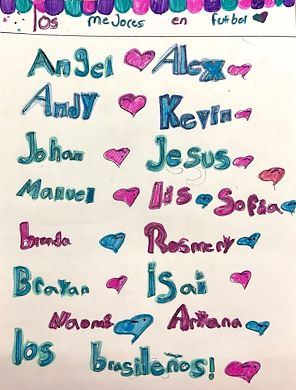 los mejores en futbol
Angel Alex
Andy Kevin
Johan Jesus
Manuel Lis Sofia
brenda Rosmery
Brayan Isai
Naomi Aryana
los brasileños!